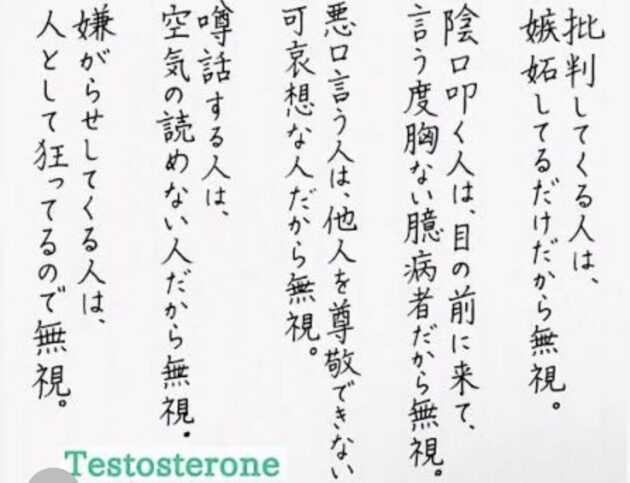 批判してくる人は、
嫉妬してるだけだから無視。
陰口叩く人は、目の前に来て、
言う度胸ない臆病者だから無視。
悪口言う人は、他人を尊敬できない
可哀想な人だから無視。
噂話する人は、
空気の読めない人だから無視.
嫌がらせしてくる人は、
人として狂ってるので無視。
Testosterone